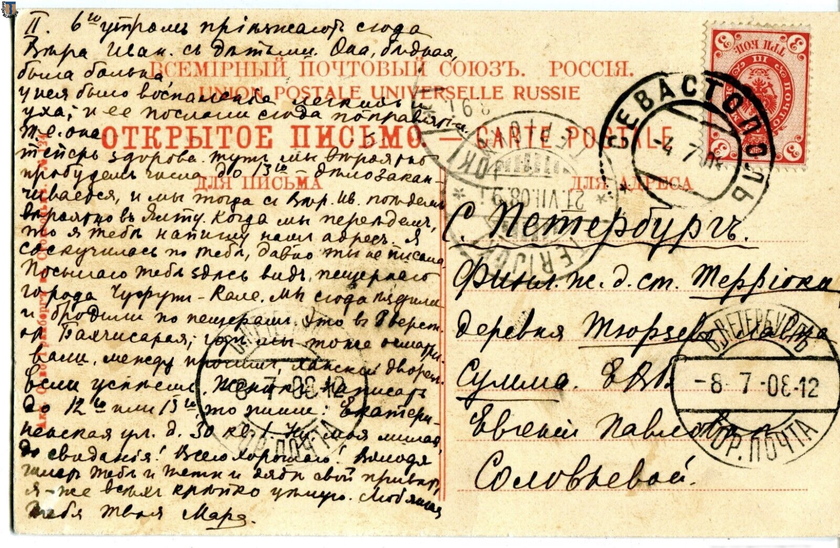 II. 6го утромъ пріѣзжаютъ сюда
Вѣра Иван. съ дѣтьми. Она, бѣдная,
была больна
у нея было воспаленіе легкихъ
и ее послали сюда поправлят
теперь здорова. тутъ мы вѣроятно
пробудемъ числа до 15го - дѣло закан-
чивается, и мы тогда съ Вѣр. Ив. поѣдемъ
вѣроятно въ Ялту. Когда мы переѣдемъ,
то я тебѣ напишу нашъ адресъ. Я
соскучилась по тебѣ, давно ты не писала
Посылаю тебѣ здѣсь видъ пещернаго
города Чуфутъ-Кале. Мы сюда ѣздили
и бродили по пещерамъ. Это въ
Бахчисарая, гдѣ мы тоже осматри
вали, между прочимъ, Ханскій дворецъ.
Если успѣешь написать
до 12го или 13го, то пиши: Екатери-
нинская ул. д. 30 кв. моя милая,
до свиданія! Всего хорошаго! Володя
шлетъ тебѣ и тетѣ и дядѣ свой привѣтъ,
я же всѣхъ крѣпко цѣлую. Любящая
тебя твоя Маря.
ВСЕМІРНЫЙ ПОЧТОВЫЙ СОЮЗЪ. РОССІЯ.
UNION POSTALE UNIVERSELLE RUSSIE
ОТКРЫТОЕ ПИСЬМО — CARTE POSTALE
ДЛЯ ПИСЬМА
ДЛЯ АДРЕСА
С. Петербургъ.
Финл. ж. д. ст. Терріоки
деревня Тюрисева дача
Сумма. ЕВБ
Евгеніи Павловнѣ
Соловьевой.
СЕВАСТОПОЛЬ
-4 7 08
TERIJOKI
21.VII.08
С.ПЕТЕРБУРГЪ
-8 7 -08-12
ГОР. ПОЧТА
8-7-08-12
ГОР. ПОЧТА
3
ТРИ КОП.
3